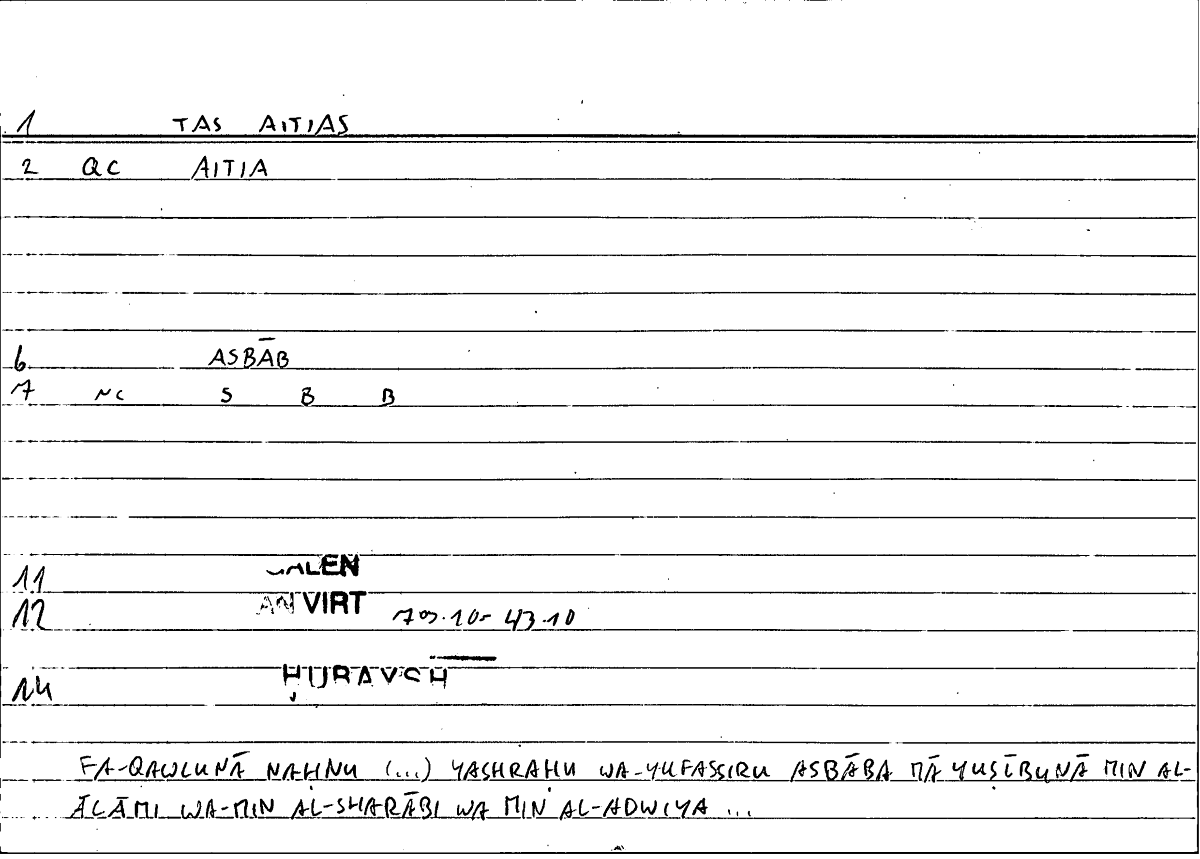 1 TAS AITIAS
2 QC AITIA
6 ASBĀB
7 NC S B B
11 GALEN
12 AN VIRT 709.10- 43.10
14 ḤUBAYSH
FA-QAWLUNĀ NAḤNU (...) YASHRAḤU WA-YUFASSIRU ASBĀBA MĀ YUṢĪBUNĀ MIN AL-
ĀLĀMI WA-MIN AL-SHARĀBI WA MIN AL-ADWIYA ...